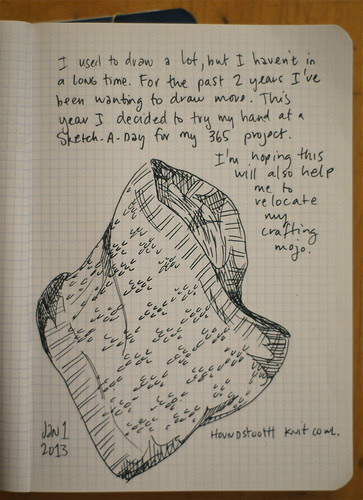 I used to draw a lot, but I haven't in
a long time. For the past 2 years I've
been wanting to draw more. This
year I decided to try my hand at a
Sketch-A-Day for my 365 project.
I'm hoping this
will also help
me to
relocate
my
crafting
mojo.
Jan 1
2013
Houndstooth Knit Cowl.